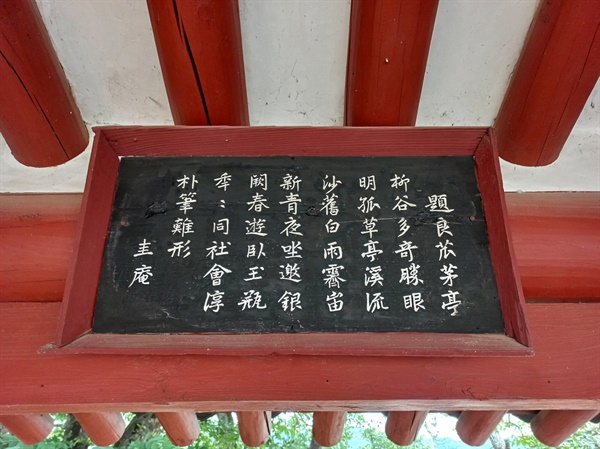 題良苽茅亭
柳谷多奇勝眼
明孤草亭溪流
沙舊白雨霽峀
新青夜坐邀銀
闕春遊臥玉瓶
秊〻同社會淳
朴筆難形
圭庵